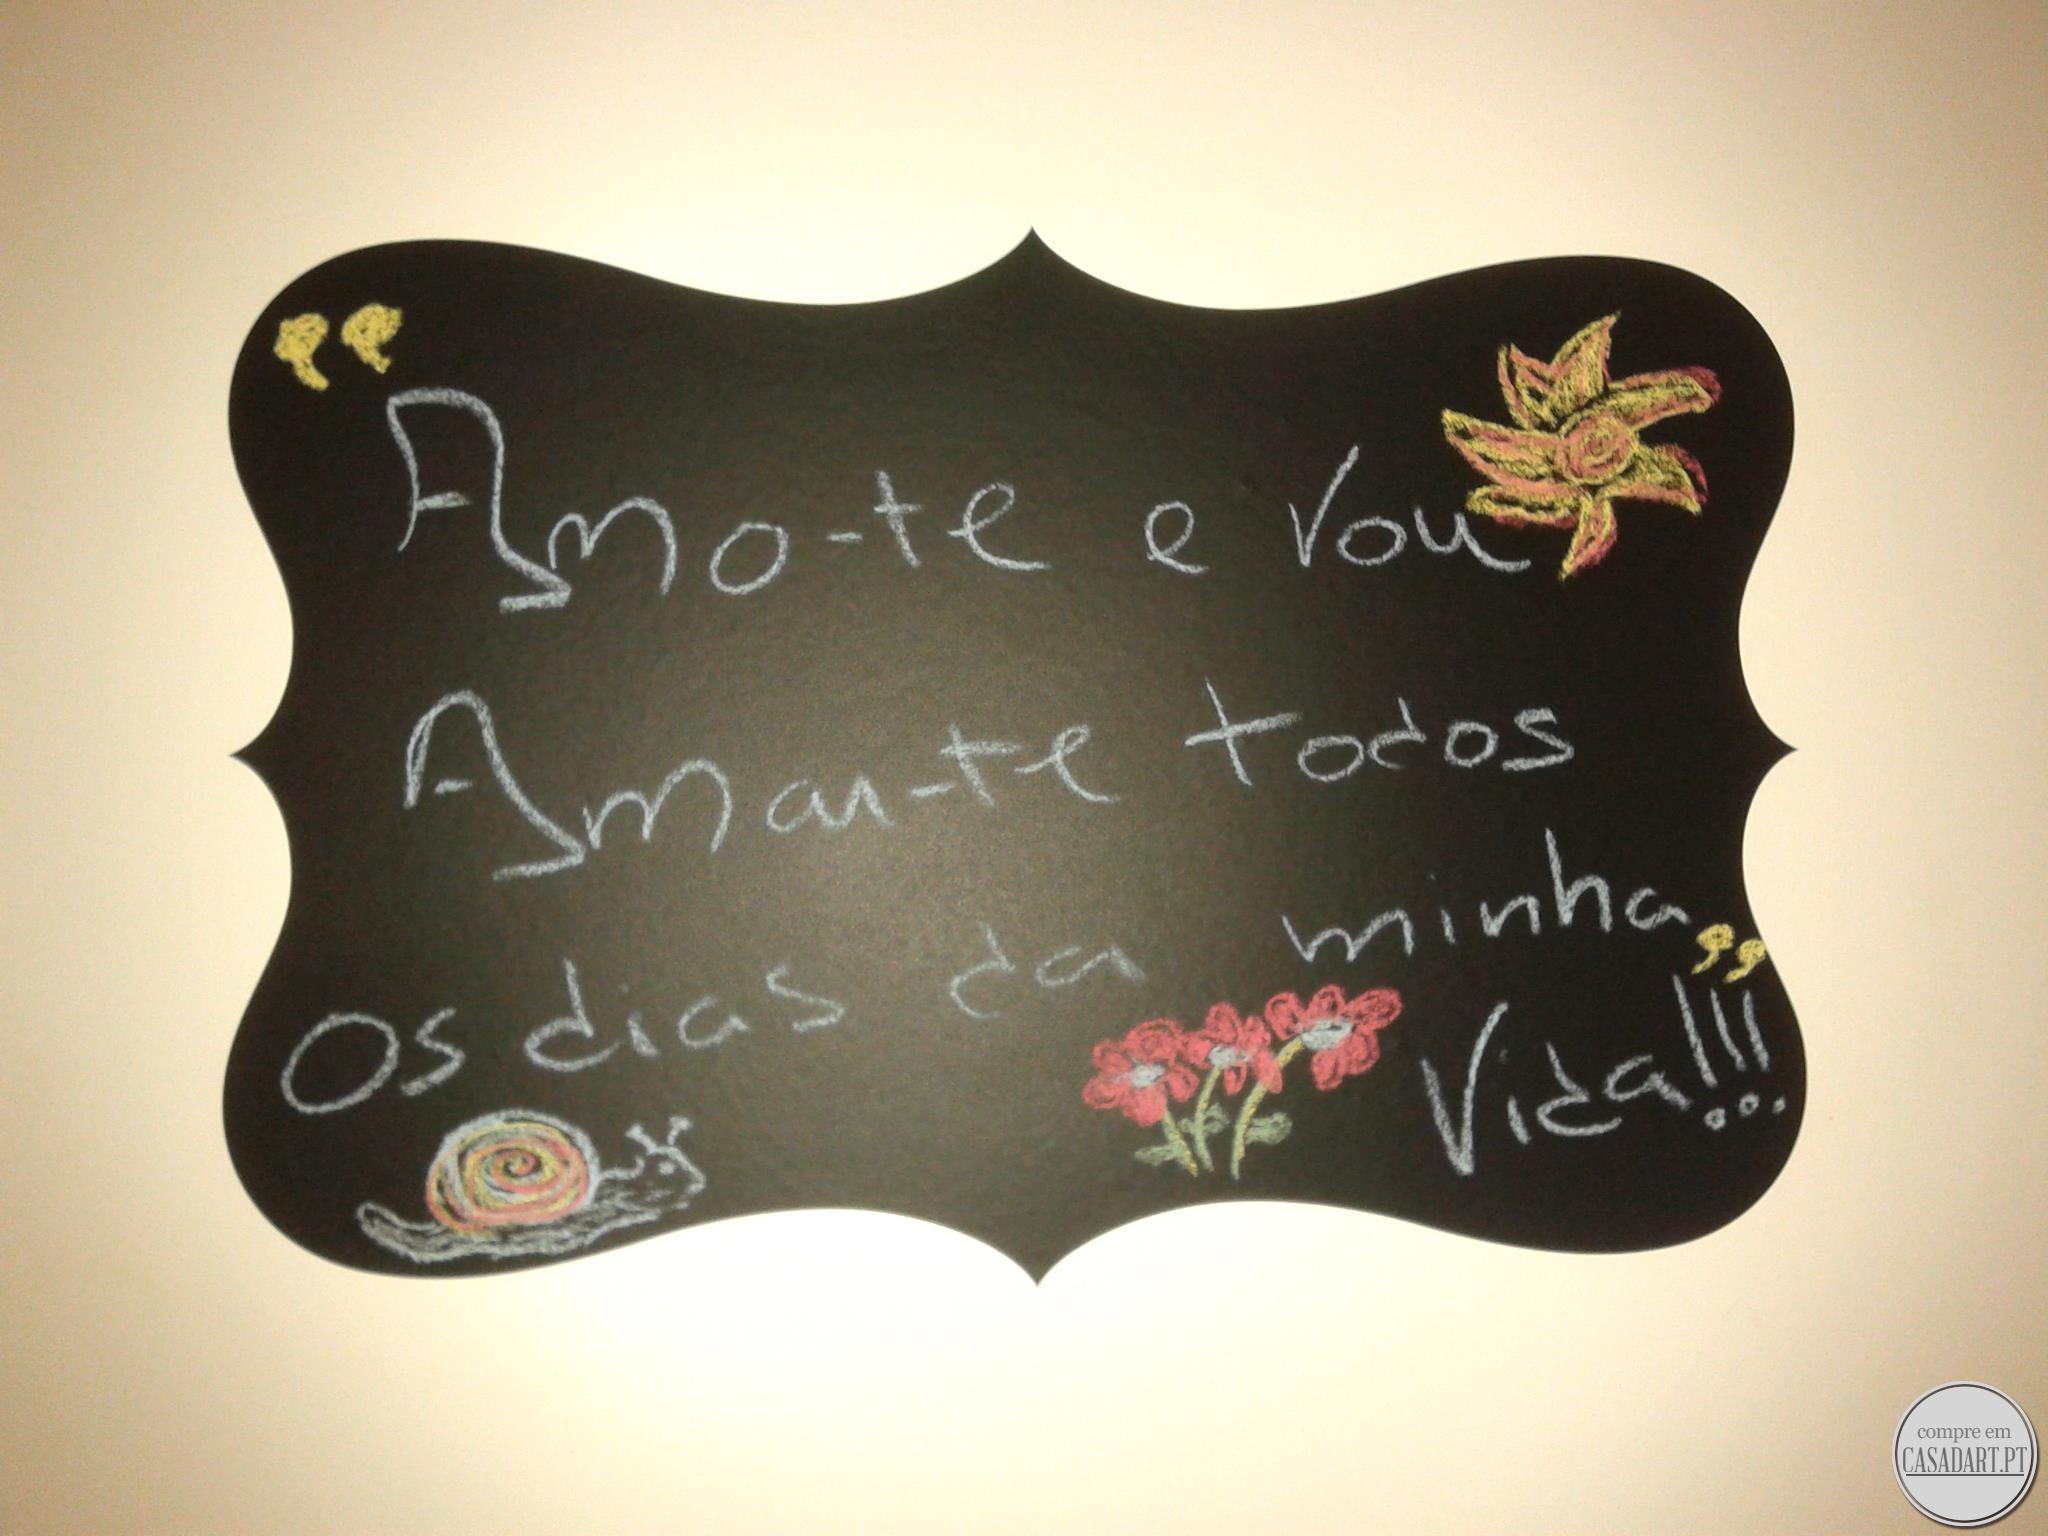 “Amo-te e vou
Amar-te todos
os dias da minha”
Vida!!!
compre em
CASADART.PT